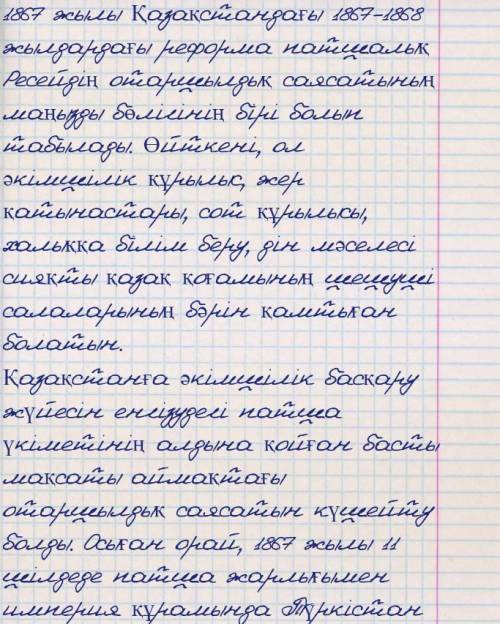 1867 жылы Қазақстандағы 1867-1868
жылдардағы реформа патшалық
Ресейдің отаршылдық саясатының
маңызды бөлігінің бірі болып
табылады. Өйткені, ол
әкімшілік құрылыс, жер
қатынастары, сот құрылысы,
халыққа білім беру, дін мәселесі
сияқты қазақ қоғамының шешуші
салаларының бәрін қамтыған
болатын.
Қазақстанға әкімшілік басқару
жүйесін енгізудегі патша
үкіметінің алдына қойған басты
мақсаты аймақтағы
отаршылдық саясатын күшейту
болды. Осыған орай, 1867 жылы 11
шілдеде патша жарлығымен
империя құрамында Түркістан